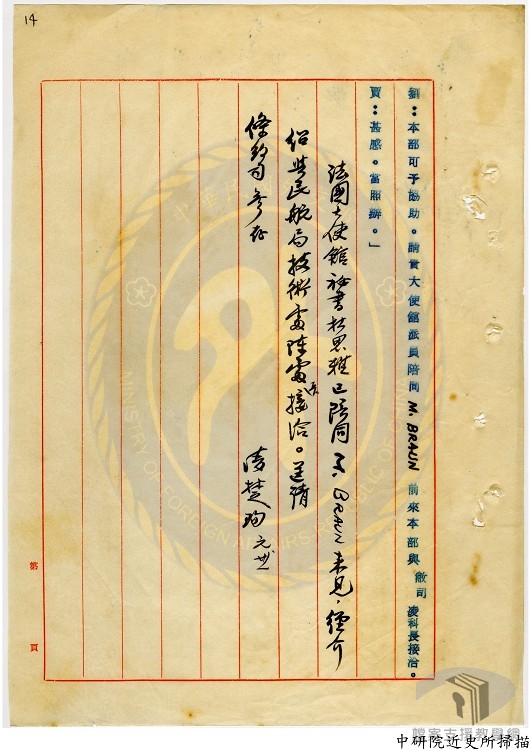 14
劉：本部可予協助。請貴大使館派員陪同 M. BRAUN 前來本部與敝司凌科長接洽。
賈：甚感。當照辦。」
法國大使館秘書杜思雅已陪同 M. BRAUN 來見，經介
紹與民航局技術室陳室長接洽。送請
條約司參存
凌楚珣 元廿
第 頁
MINISTRY OF FOREIGN AFFAIRS REPUBLIC OF CHINA
檔案支援教學網
中研院近史所掃描